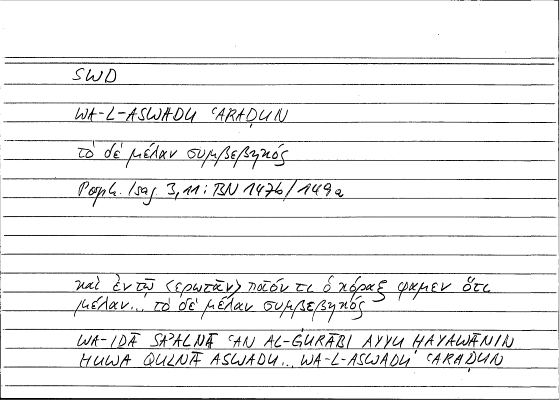 SWD
WA-L-ASWADU ʿARAḌUN
τὸ δὲ μέλαν συμβεβηκός
Porph. Isag. 3,11: BN 147b/149a
καὶ ἐν τῷ <ἐρωτᾶν> ποῖόν τι ὁ κόραξ φαμεν ὅτι
μέλαν... τὸ δὲ μέλαν συμβεβηκός
WA-IḎĀ SAʾALNĀ ʿAN AL-ĠURĀBI AYYU HAYAWĀNIN
HUWA QULNĀ ASWADU... WA-L-ASWADU ʿARAḌUN